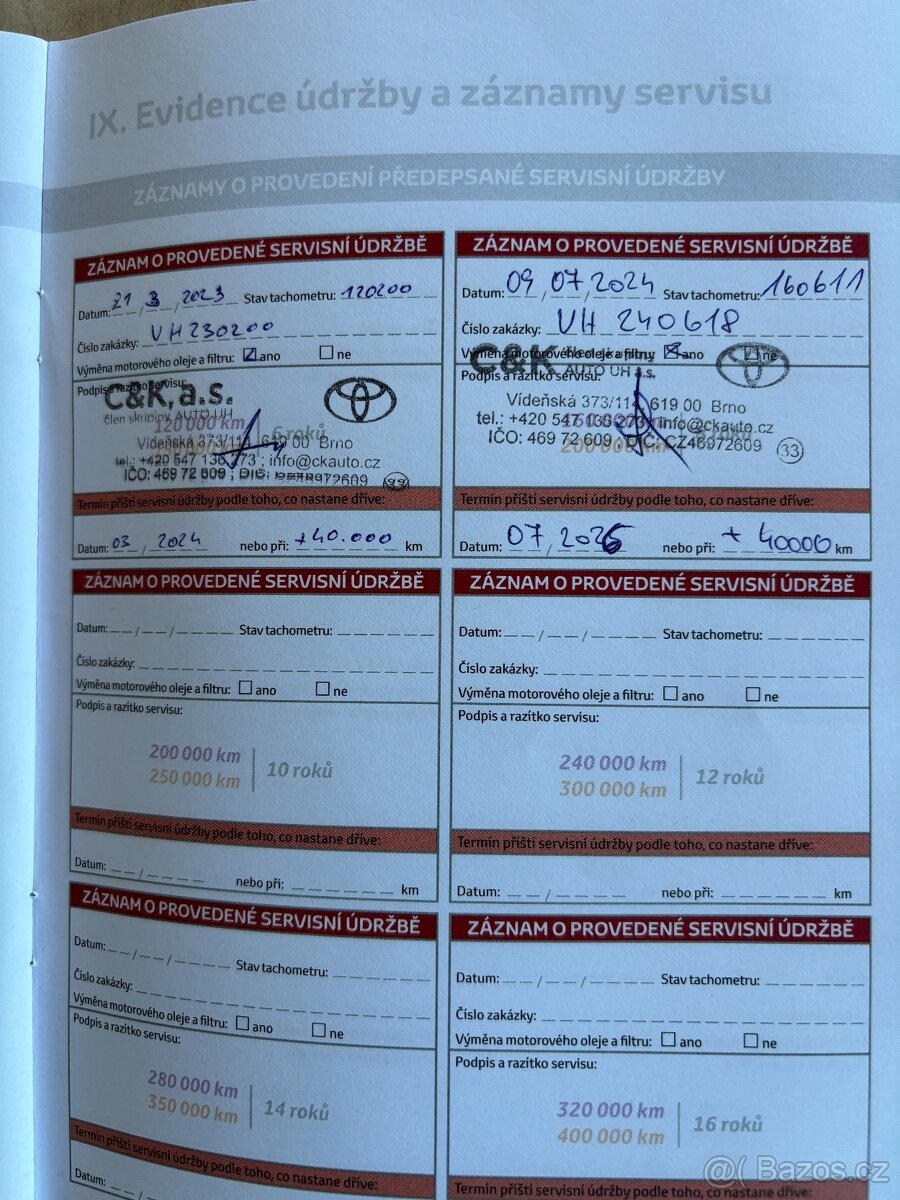 IX. Evidence údržby a záznamy servisu
ZÁZNAMY O PROVEDENÍ PŘEDEPSANÉ SERVISNÍ ÚDRŽBY
ZÁZNAM O PROVEDENÉ SERVISNÍ ÚDRŽBĚ
Datum: 21 / 3 / 2023 Stav tachometru: 120200
Číslo zakázky: VH230200
Výměna motorového oleje a filtru: ano ne
Podpis a razítko servisu:
C&K, a.s.
člen skupiny AUTO UH
120 000 km
6 roků
Vídeňská 373/114 619 00 Brno
tel.: +420 547 136 273 info@ckauto.cz
IČO: 469 72 609 DIČ: CZ46972609
Termín příští servisní údržby podle toho, co nastane dříve:
Datum: 03 / 2024 nebo při: +40.000 km
ZÁZNAM O PROVEDENÉ SERVISNÍ ÚDRŽBĚ
Datum: 09 / 07 / 2024 Stav tachometru: 160611
Číslo zakázky: VH 240618
Výměna motorového oleje a filtru: ano ne
C&K člen skupiny
AUTO UH a.s.
Podpis a razítko servisu:
Vídeňská 373/114 619 00 Brno
tel.: +420 547 136 273 info@ckauto.cz
IČO: 469 72 609 DIČ: CZ46972609
200 000 km
33
Termín příští servisní údržby podle toho, co nastane dříve:
Datum: 07 / 2026 nebo při: + 40000 km
ZÁZNAM O PROVEDENÉ SERVISNÍ ÚDRŽBĚ
Datum: / / Stav tachometru:
Číslo zakázky:
Výměna motorového oleje a filtru: ano ne
Podpis a razítko servisu:
200 000 km
250 000 km
10 roků
Termín příští servisní údržby podle toho, co nastane dříve:
Datum: / nebo při: km
ZÁZNAM O PROVEDENÉ SERVISNÍ ÚDRŽBĚ
Datum: / / Stav tachometru:
Číslo zakázky:
Výměna motorového oleje a filtru: ano ne
Podpis a razítko servisu:
240 000 km
300 000 km
12 roků
Termín příští servisní údržby podle toho, co nastane dříve:
Datum: / nebo při: km
ZÁZNAM O PROVEDENÉ SERVISNÍ ÚDRŽBĚ
Datum: / / Stav tachometru:
Číslo zakázky:
Výměna motorového oleje a filtru: ano ne
Podpis a razítko servisu:
280 000 km
350 000 km
14 roků
Termín příští servisní údržby podle toho, co nastane dříve:
Datum: / nebo při: km
ZÁZNAM O PROVEDENÉ SERVISNÍ ÚDRŽBĚ
Datum: / / Stav tachometru:
Číslo zakázky:
Výměna motorového oleje a filtru: ano ne
Podpis a razítko servisu:
320 000 km
400 000 km
16 roků
Termín příští servisní údržby podle toho, co nastane dříve:
Bazos.cz